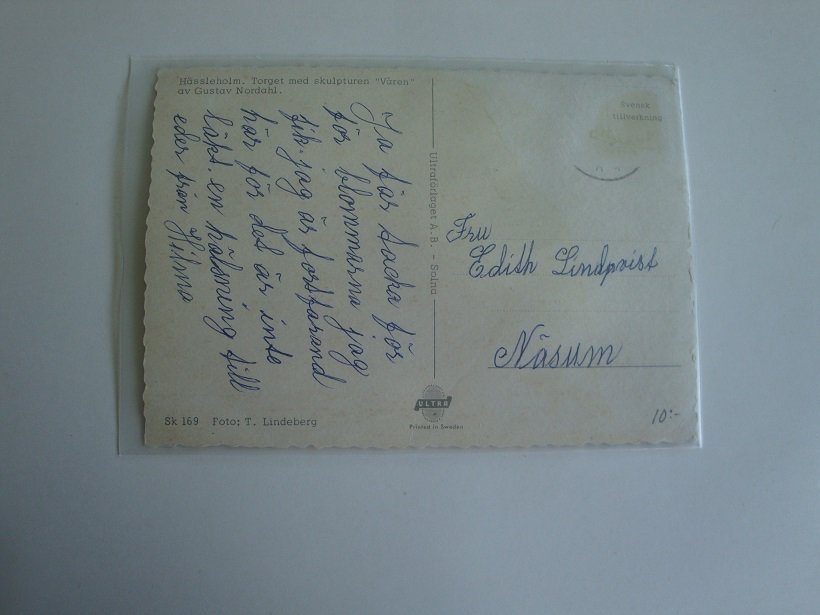 Hässleholm. Torget med skulpturen "Våren"
av Gustav Nordahl.
Ja får tacka för
för blommarna jag
fik. jag är fortfarand
här för det är inte
läkt. en hälsning till
eder från Hilma
Ultraförlaget A.B. - Solna
Svensk
tillverkning
Fru
Edith Lindqvist
Näsum
Sk 169 Foto; T. Lindeberg
ULTRA
Printed in Sweden
10:-